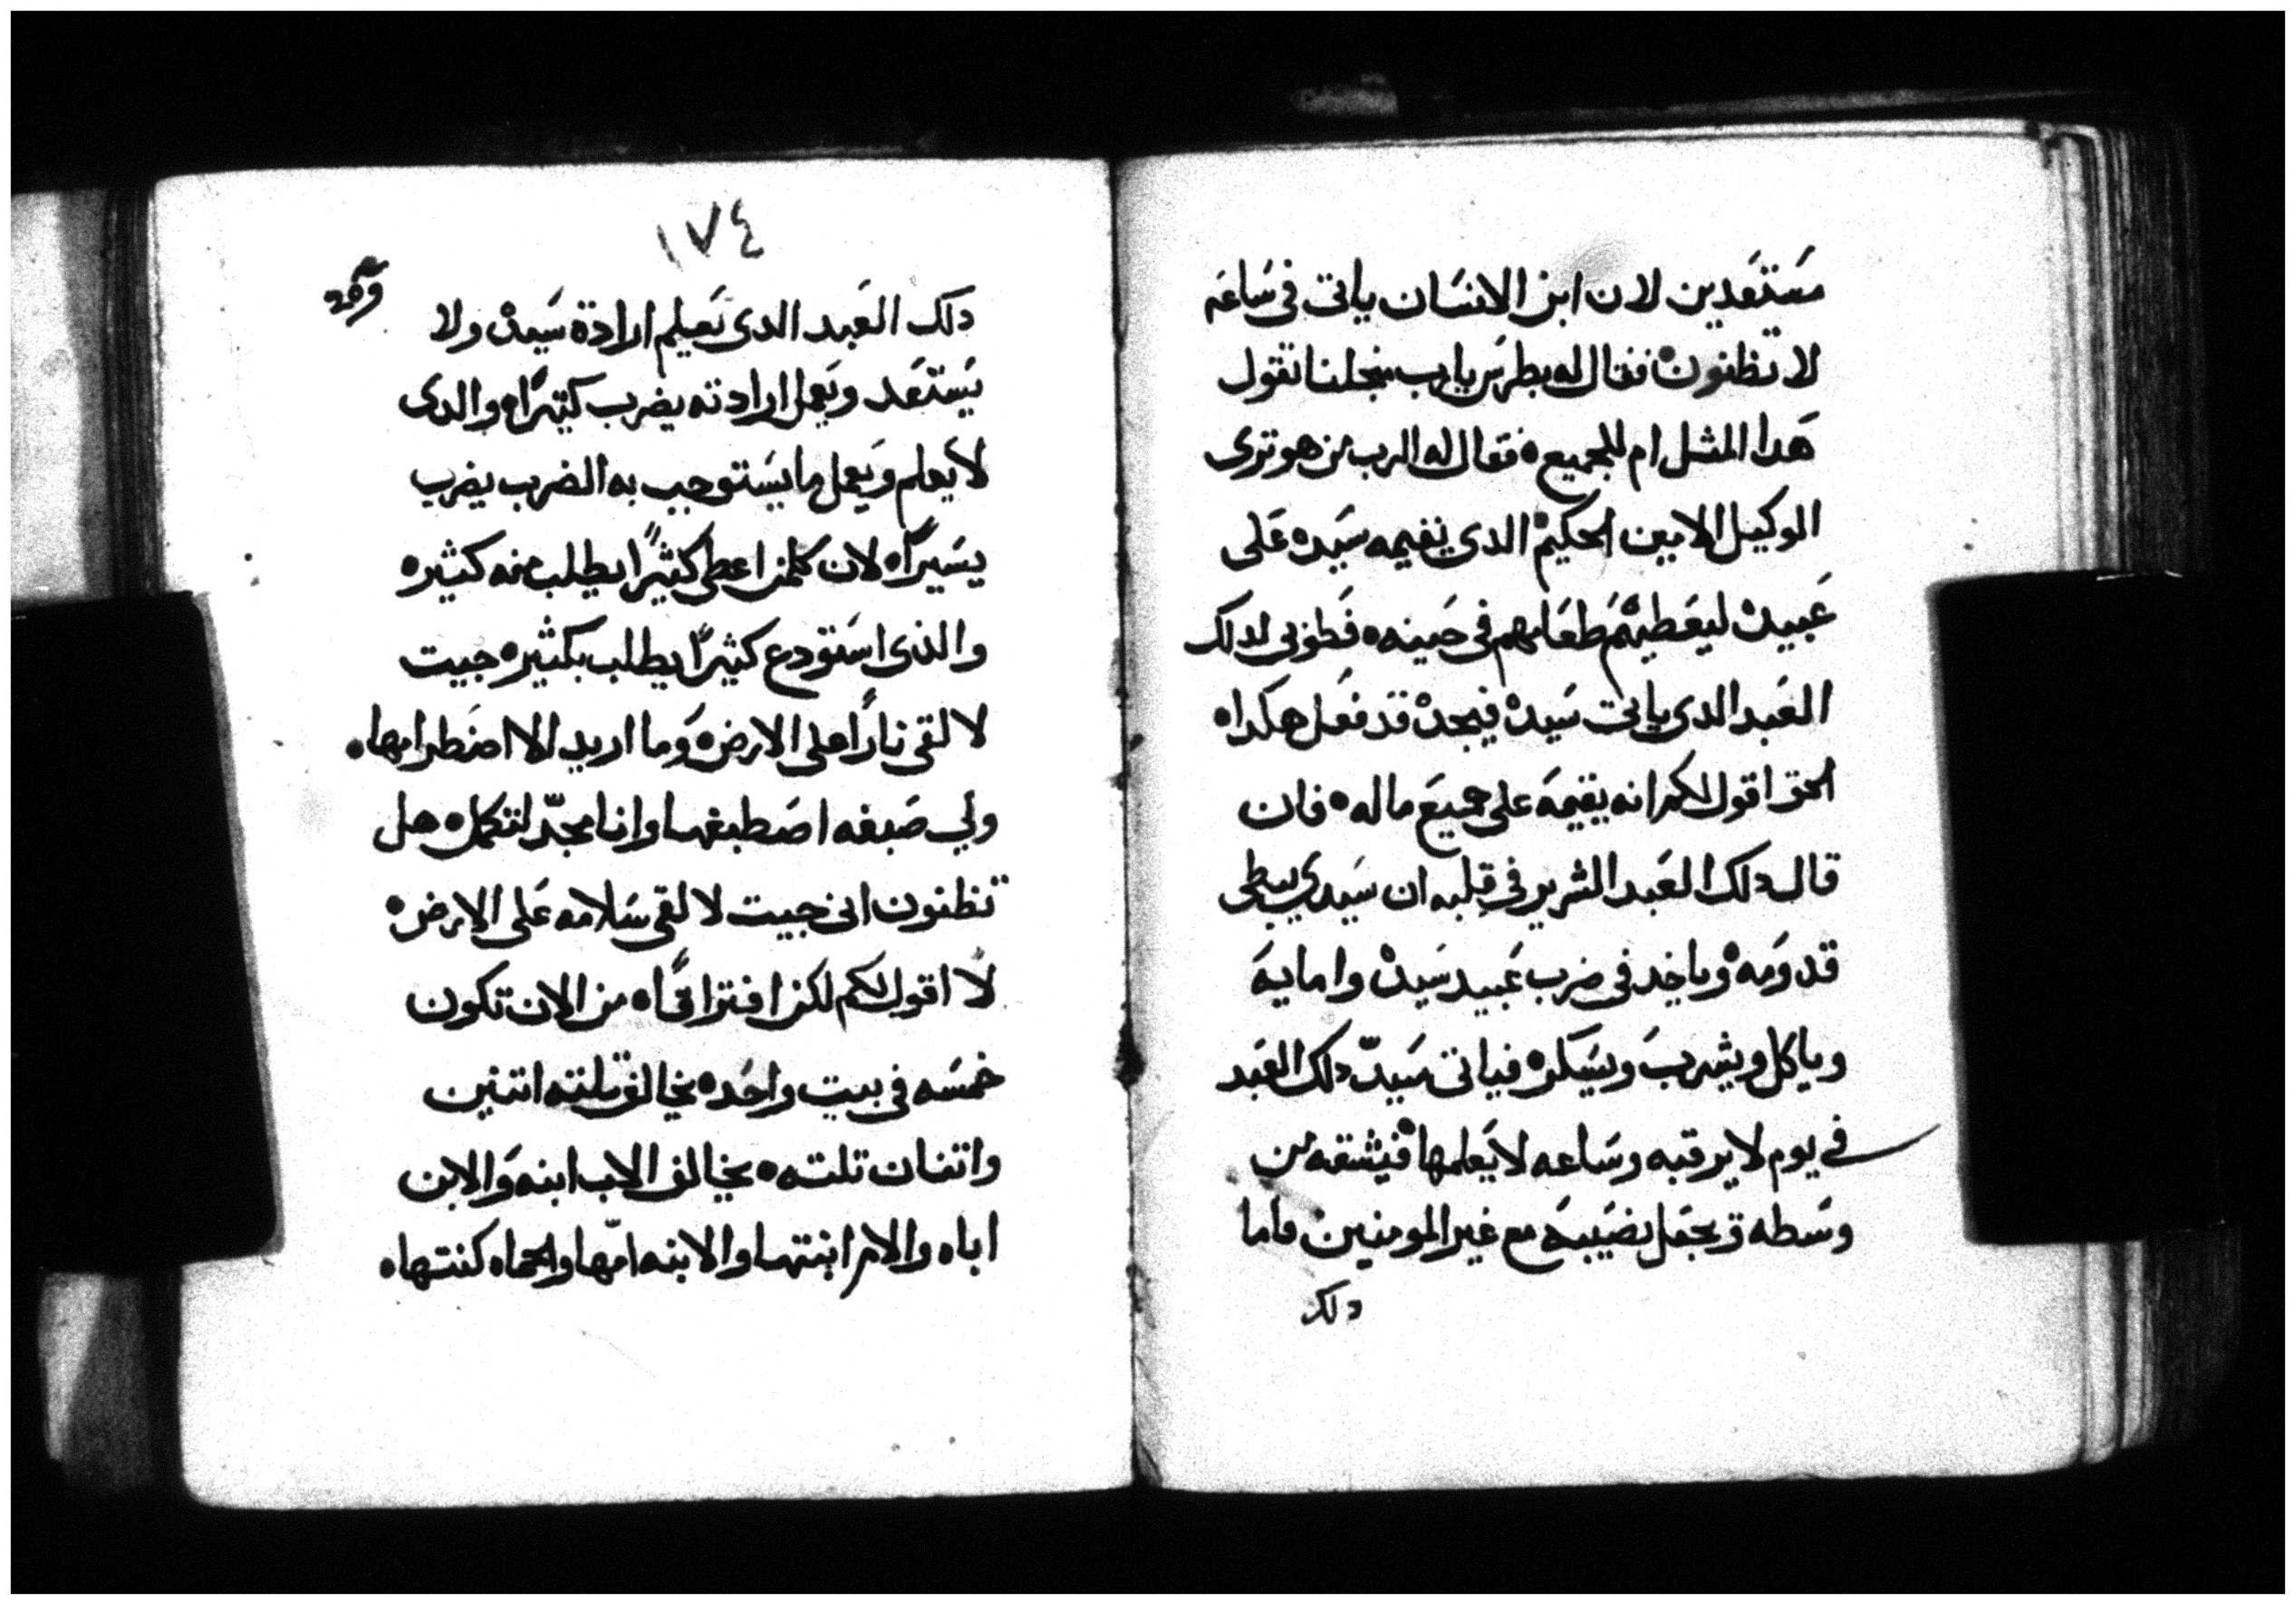 مستعدين لان ابن الانسان ياتى فى ساعه
لا تظنون فقال له بطرس يارب من اجلنا تقول
هدا المثل ام للجميع ه فقال له الرب من هو ترى
الوكيل الامين الحكيم الدى يقيمه سيده على
عبيده ليعطيهم طعامهم فى حينه ه فطوبى لدلك
العبد الدى ياتى سيده فيجده قد فعل هكدا ه
الحق اقول لكم انه يقيمه على جميع ماله ه فان
قال دلك العبد الشرير فى قلبه ان سيدي يبطى
قدومه وياخد فى ضرب عبيد سيده وامايه
وياكل ويشرب ويسكر ه فياتى سيد دلك العبد
فى يوم لا يرقبه وساعه لا يعلمها فيشقه من
وسطه ويجعل نصيبه مع غير المومنين فاما
دلك
١٧٤
دلك العبد الدى يعلم ارادة سيده ولا
يستعد ويعمل ارادته يضرب كتيرًا ه والدى
لا يعلم ويعمل ما يستوجب به الضرب يضرب
يسيرًا ه لان كلمن اعطى كثيرًا يطلب منه كثير ه
والذى استودع كثيرًا يطلب بكثير ه جيت
لالقى نارًا على الارض ه وما اريد الا اضطرامها ه
ولي صبغه اصطبغها وانا مجدّ لتكمل ه هل
تظنون انى جيت لالقى سلامه على الارض ه
لا اقول لكم لكن افتراقًا ه من الان تكون
خمسه فى بيت واحد ه يخالف تلته اتنين
واتنان تلته ه يخالف الاب ابنه والابن
اباه والام ابنتها والابنه امّها والحماه كنتها ه